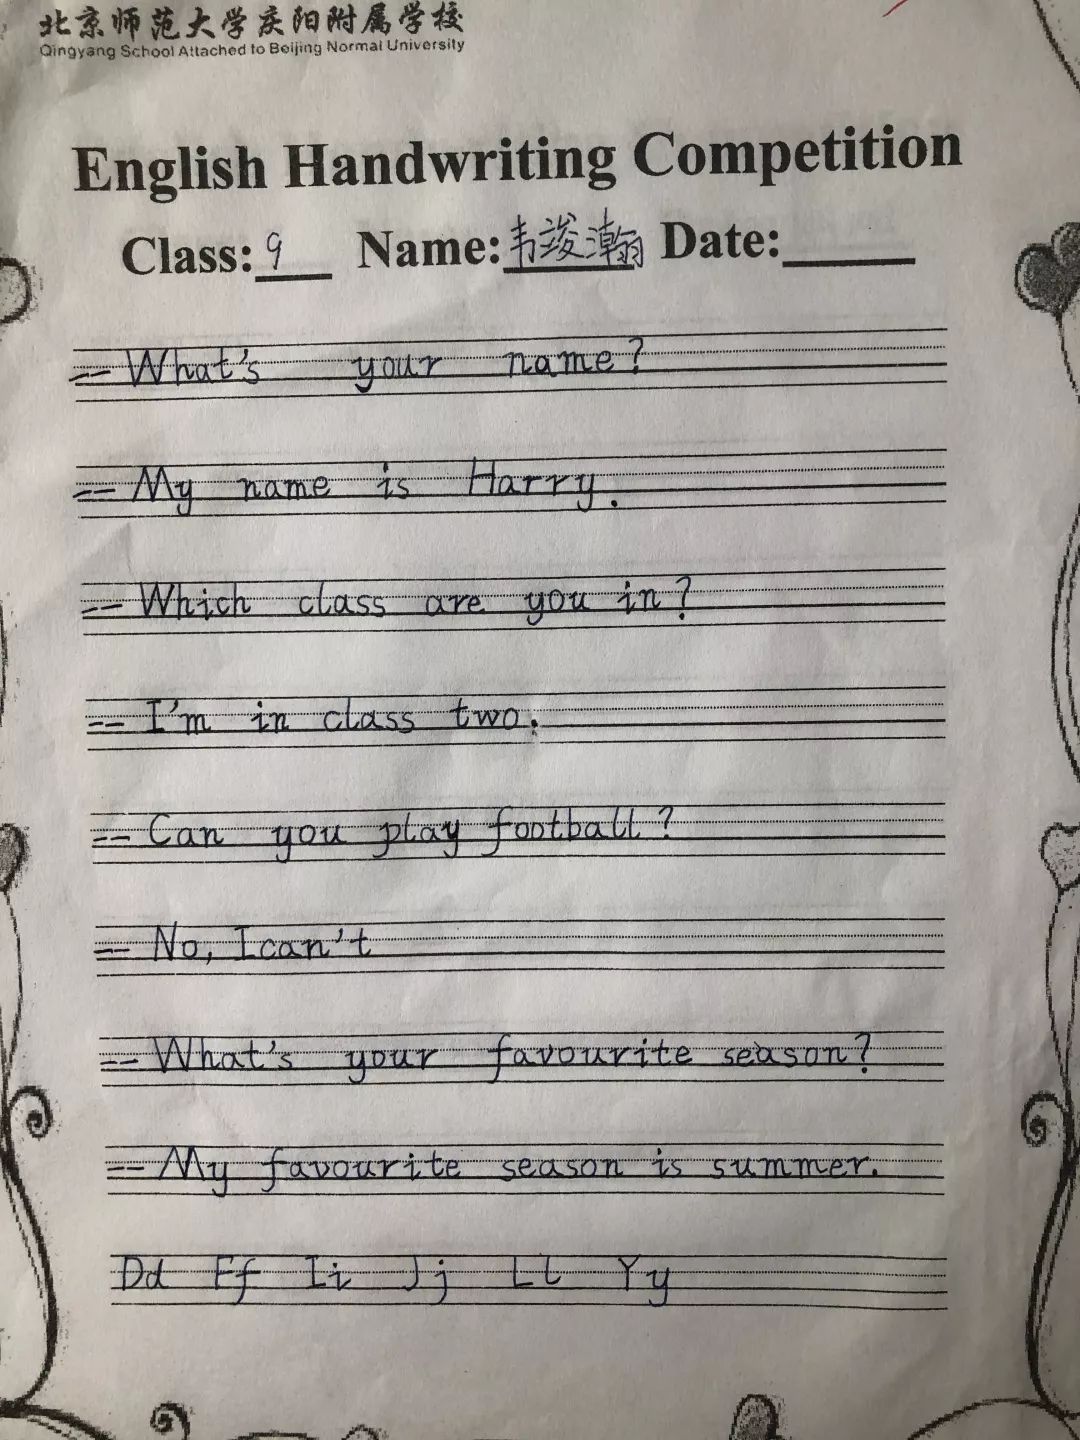 北京师范大学庆阳附属学校
Qingyang School Attached to Beijing Normal University
English Handwriting Competition
Class: 9 Name: 韦竣瀚 Date:
-- What's your name?
-- My name is Harry.
-- Which class are you in?
-- I'm in class two.
-- Can you play football?
-- No, I can't
-- What's your favourite season?
-- My favourite season is summer.
Dd Ff Ii Jj Ll Yy